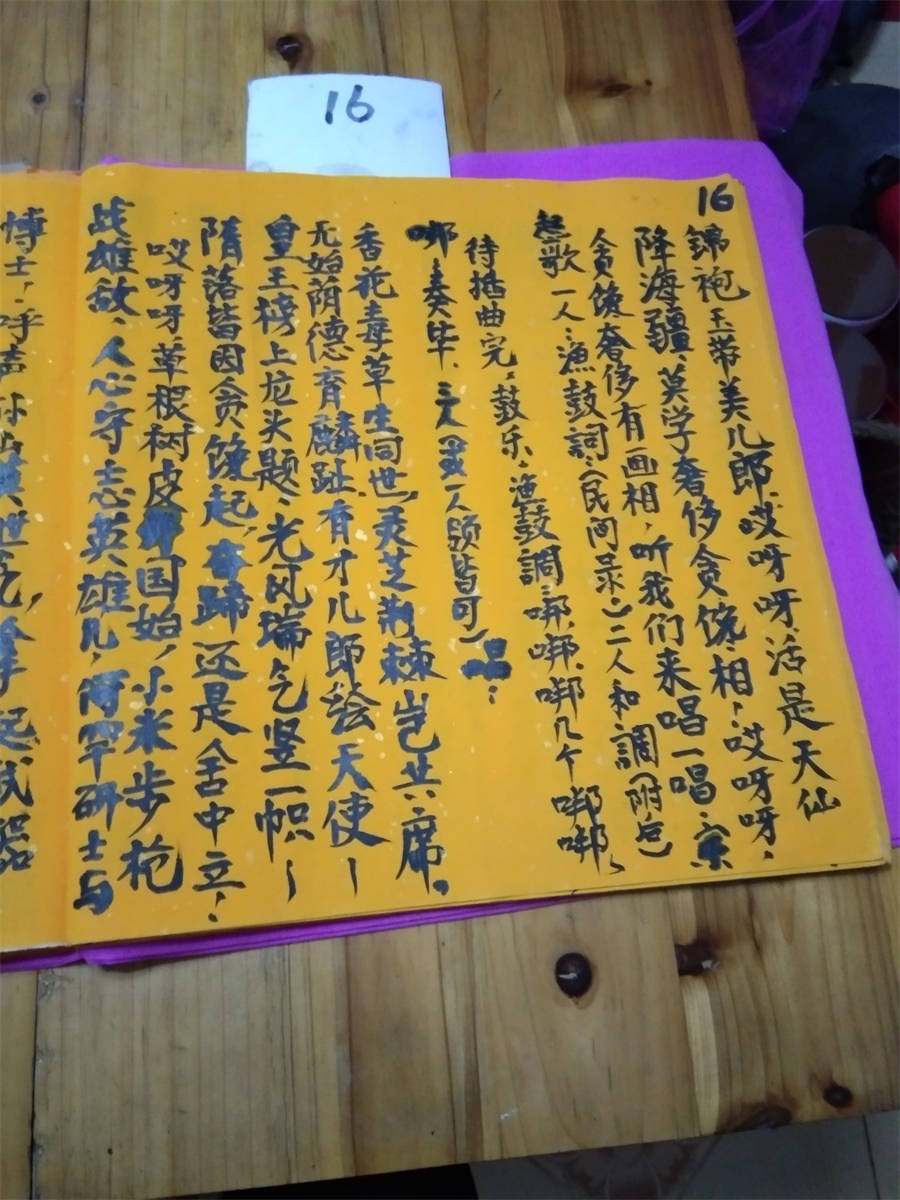 16
16
锦袍玉带美儿郎、哎呀呀、活是天仙
降海疆、莫学奢侈贪馋相、哎呀呀、
贪馋奢侈有画相，听我们来唱一唱、
起歌一人：渔鼓詞（民间录）二人和調（附点）
待插曲完：鼓乐：渔鼓調：嘟、嘟、嘟几个嘟嘟、
嘟：奏毕、三人（或一人颐皆可）唱：
香花毒草生同世，灵芝荆棘岂共席，
无始荫德育麟趾、有才儿郎绘天使—
皇王榜上龙头题：光风瑞气竖一帜—
隋落皆因贪馋起，奋蹄还是舍中立：
哎呀呀、草根树皮 国始，小米步枪
战雄敌、人心守志英雄儿，博罕研士与
博士，呼声